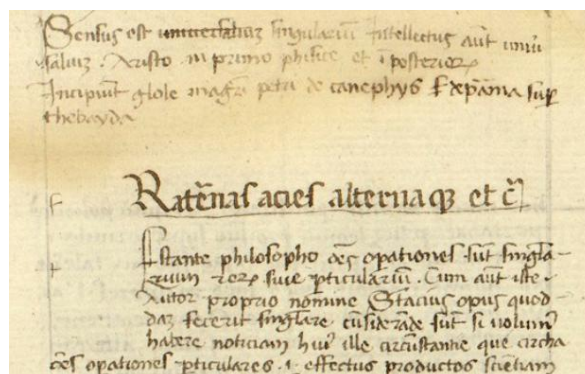 Sensus est universalium singularium Intellectus aūt univer
salium Aristo in primo phisice et ī posteriorꝫ
Incipiunt glose magrī petri de canephys & de pāma sup
thebayda
Rat̄nas acies alternaqꝫ et c̄
Estante philosopho oēs opationes sūt singla
rium rerꝫ sive pticularium. Cum aūt iste
Autor proprio nomine Stacius opus quod
daꝫ fecerit singlare cūsiderāde sūt si volum9
habere noticiam hui9 ille circūstantie que circha
oēs opationes pticulares .i. effectus productos scientiam